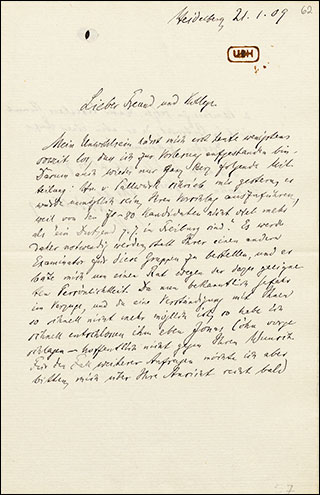 62
Heidelberg 21.1.09
UBH
Lieber Freund und Kollege.
Mein Unwohlsein lässt mich erst heute wenigstens
soweit los, das ich zur Vorlesung aufgestanden bin.
Darum auch wieder nur ganz kurz folgende Mit-
teilung: Hr. v Sallwürk schrieb mir gestern, es
würde unmöglich sein, Ihren Vorschlag auszuführen,
weil von den 70-90 Kandidaten nicht viel mehr
als ein Dutzend z. Z. in Freiburg sind. Es werde
daher notwendig werden, statt Ihrer einen andern
Examinator für diese Gruppen zu bestellen, und er
bäte mich um einen Rat wegen der dazu geeigne-
ten Persönlichkeit. Da nun bekanntlich Gefahr
im Verzuge, und da eine Verständigung mit Ihnen
so schnell nicht mehr möglich ist, so habe ich
schnell entschlossen ihm eben Jonas Cohn vorge-
schlagen – hoffentlich nicht gegen Ihren Wunsch.
Für den Fall weiterer Anfragen möchte ich aber
bitten, mich über Ihre Ansicht recht bald